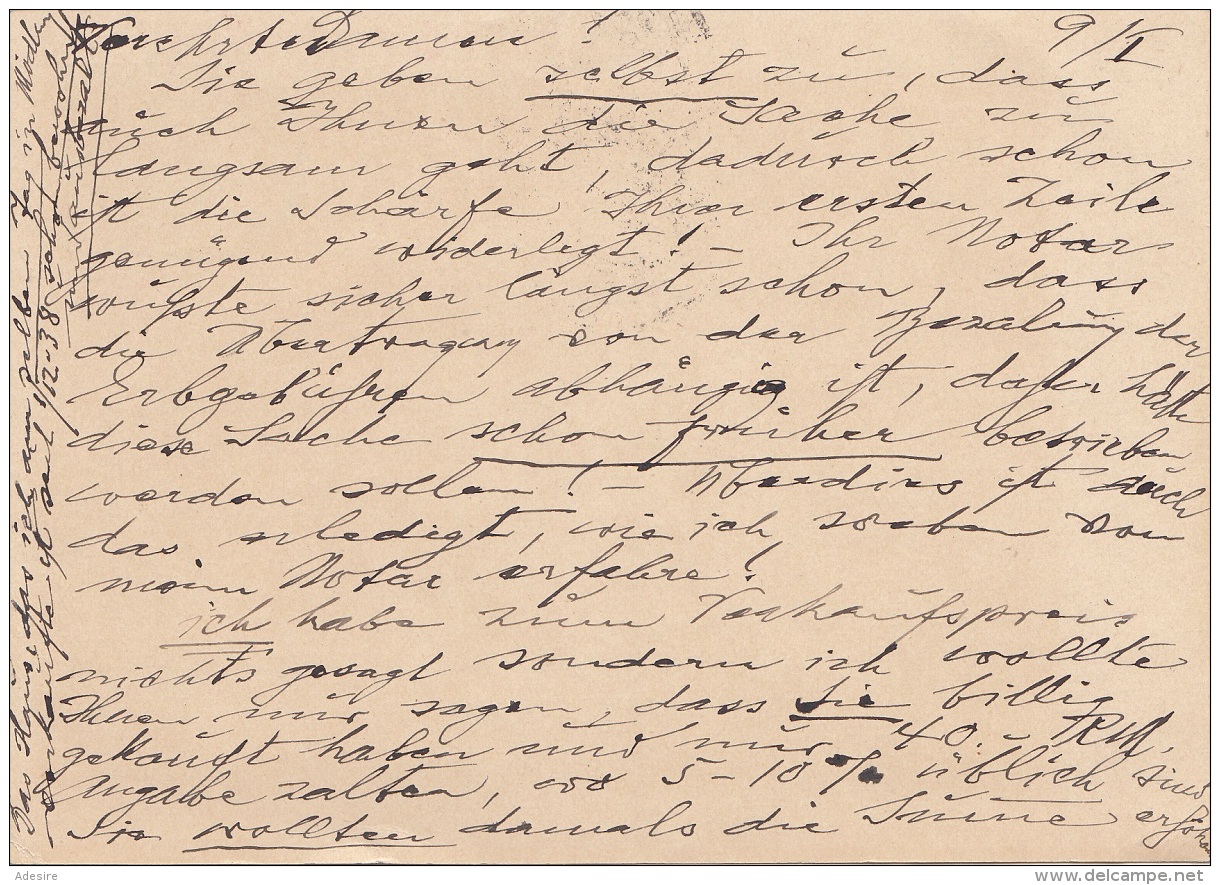 Verehrte Damen! 9/I
Sie geben selbst zu, dass
auch Ihnen die Sache zu
langsam geht, dadurch schon
ist die Schärfe Ihrer ersten Zeile
genügend widerlegt! – Ihr Notar
wußte sicher längst schon, dass
die Übertragung von der Bezalung der
Erbgebühren abhängig ist, daher hätte
diese Sache schon früher betrieben
werden sollen! – Überdies ist auch
das erledigt, wie ich soeben von
mein Notar erfahre!
ich habe zum Verkaufspreis
nichts gesagt sondern ich wollte
Ihnen nur sagen, dass Sie billig
gekauft haben und nur 40.- RM.
Angabe zalten, wo 5–10% üblich sind
Sie wollten damals die Summe erhöhen
Das Häuse das ich am selben Tag in Mödling
verkaufte ist seit 1/12-38 schon bewohnt
und ausbezalt
Adesire
delcampe.net